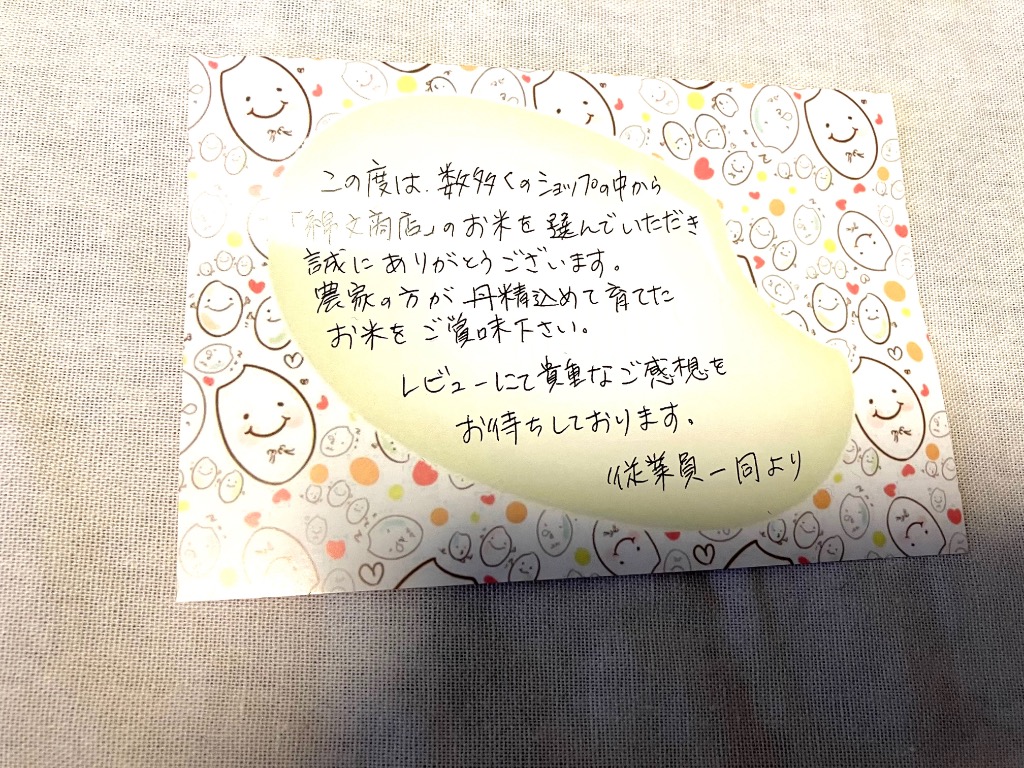 この度は、数多くのショップの中から
「綿文商店」のお米を選んでいただき
誠にありがとうございます。
農家の方が丹精込めて育てた
お米をご賞味下さい。
レビューにて貴重なご感想を
お待ちしております。
従業員一同より